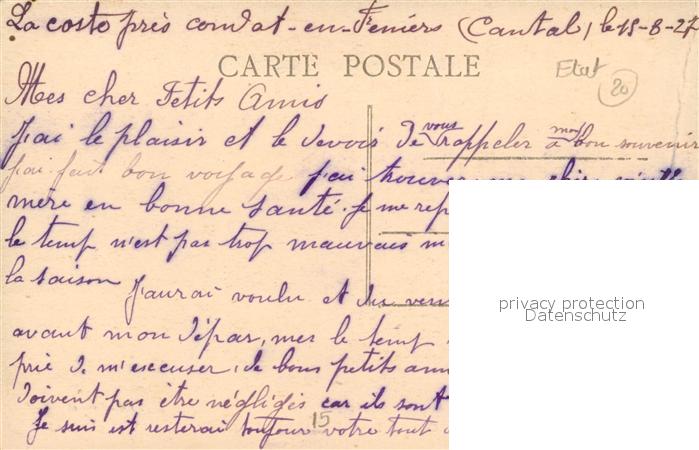 La coste près condat-en-Feniers (Cantal) le 15-8-27
CARTE POSTALE
Etat 20
Mes cher Petits Amis
J'ai le plaisir et le devois de vous rappeler a mon bon souvenir
j'ai fait bon voyage j'ai trouver
mère en bonne santé. Je me rep
le temp n'est pas trop mauvais m
la saison
J'aurai voulu et du ven
avant mon dépar, mes le temp
prie de m'esecuser, de bons petits ami
doivent pas être négligés car ils sont
Je suis est resterai toujour votre tout
15
privacy protection
Datenschutz